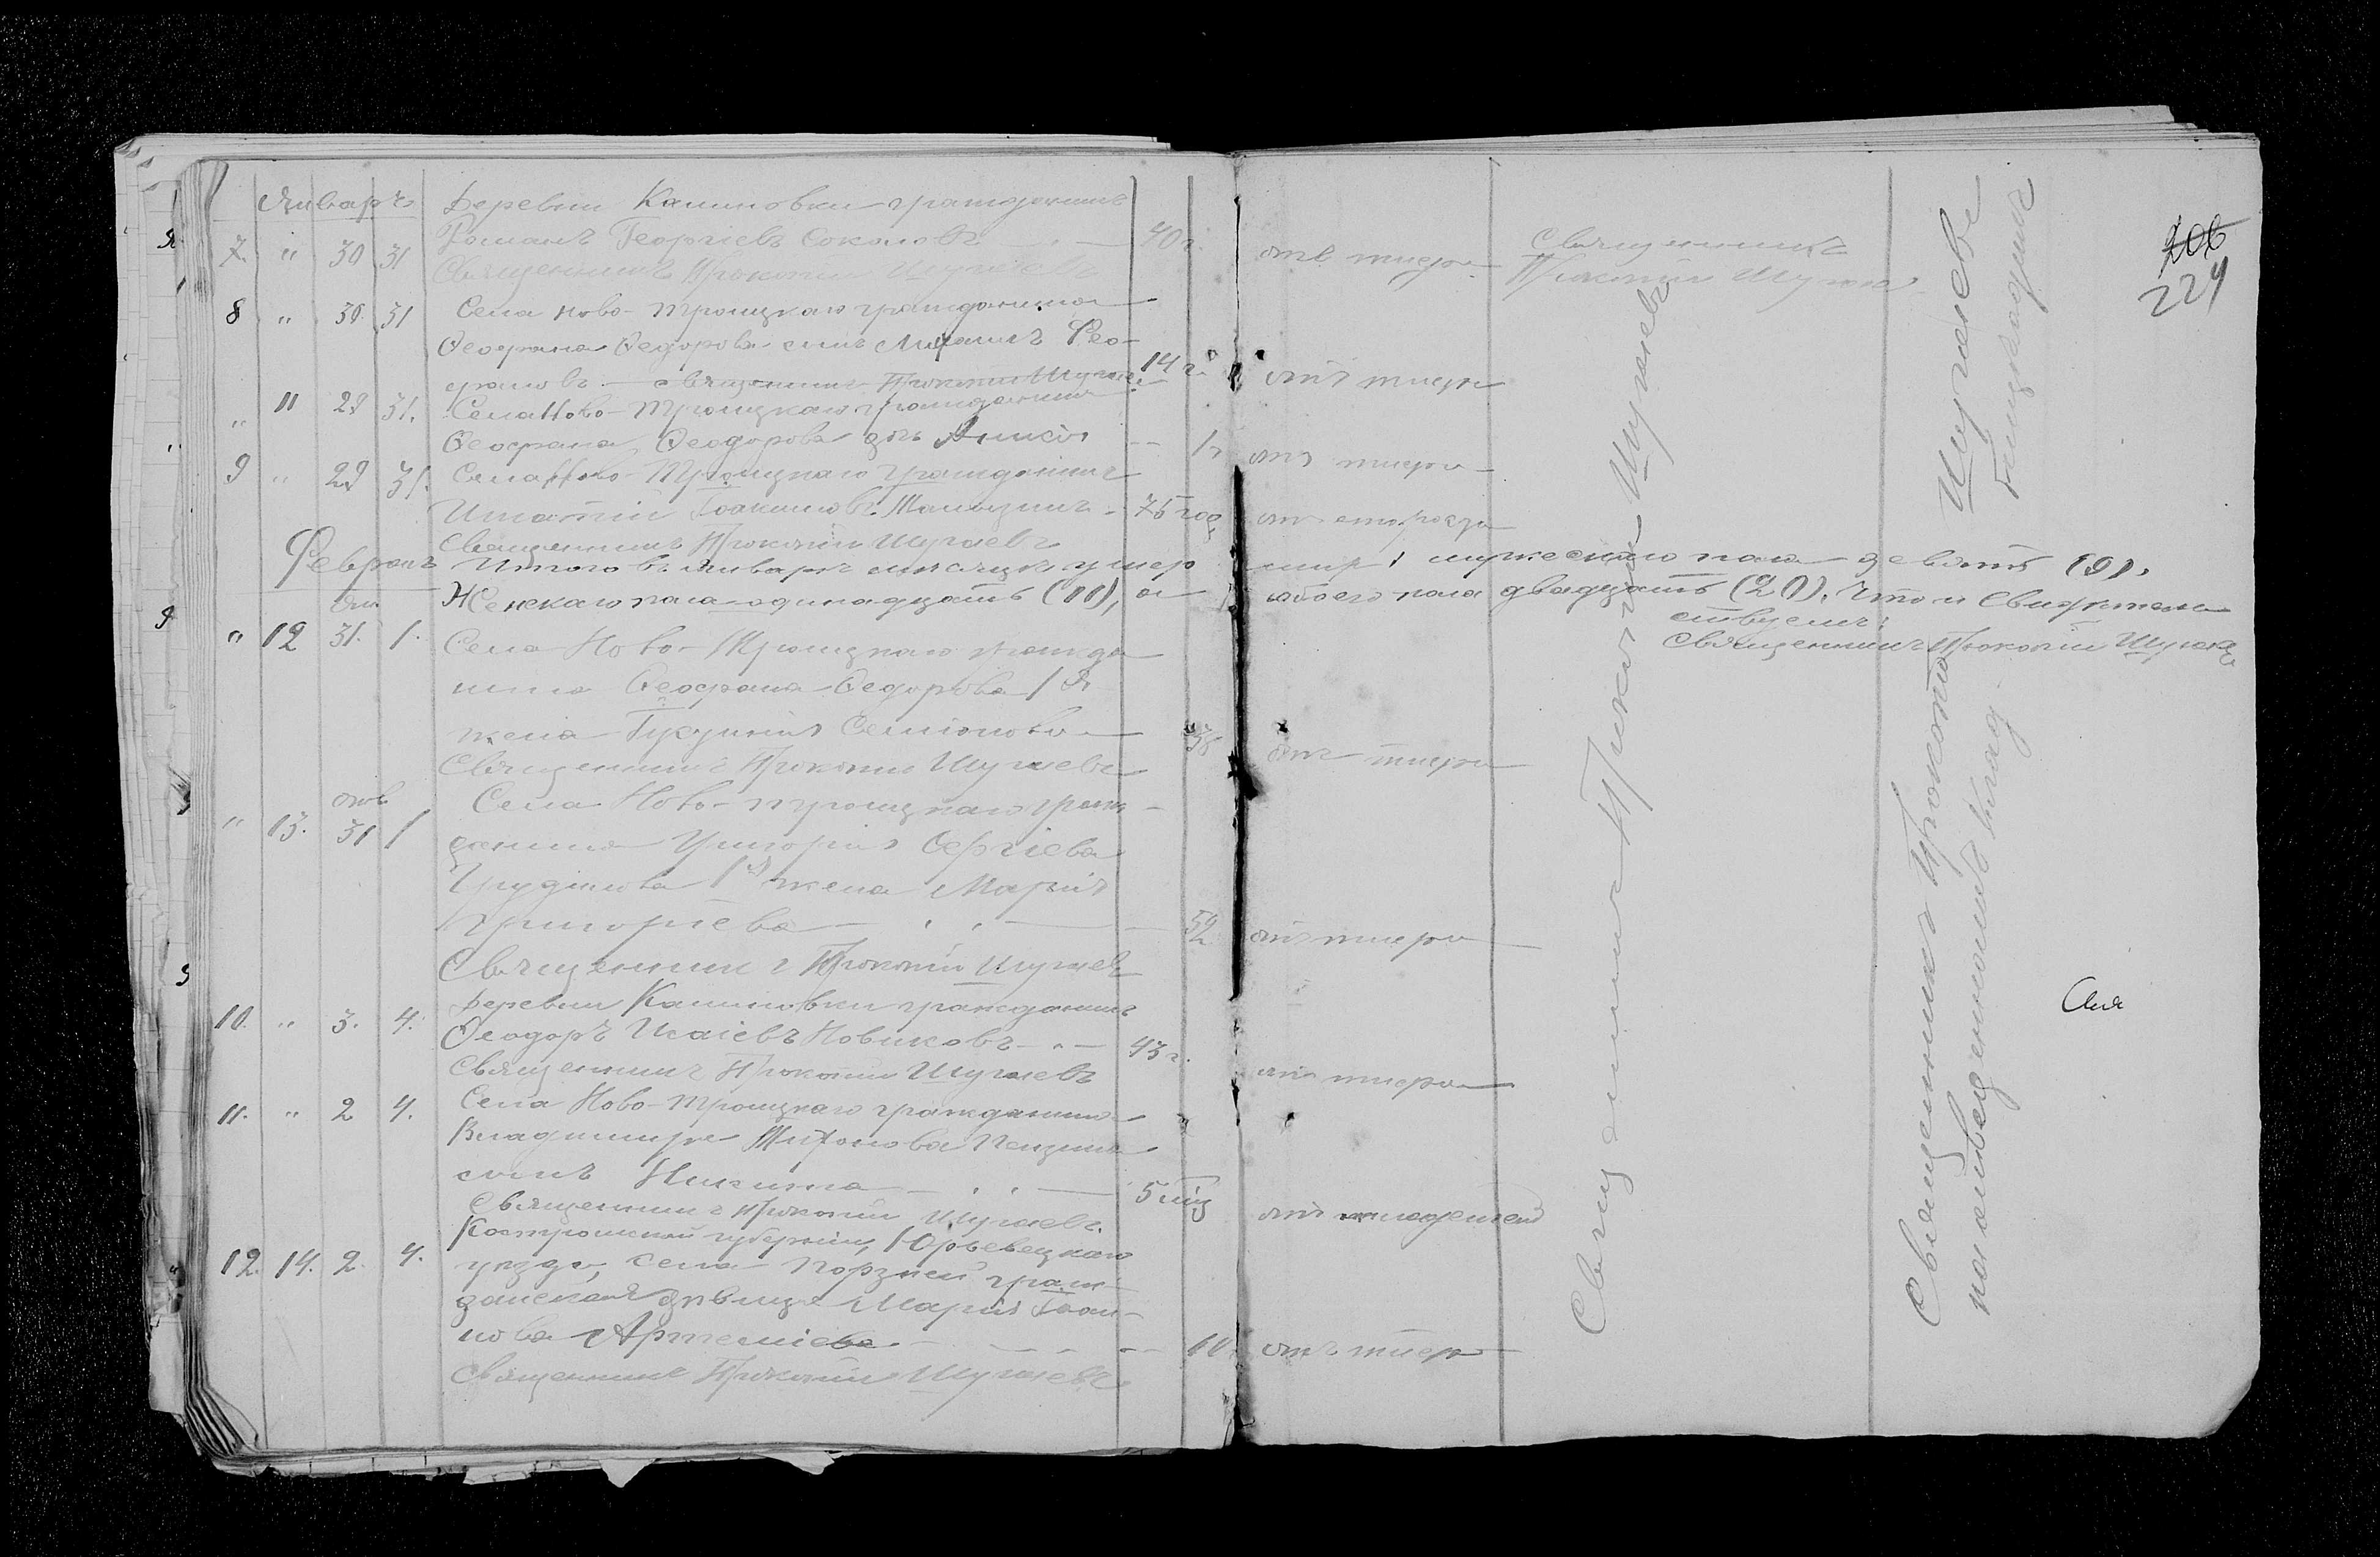 Январь
Деревни Калиновки гражданинъ
7. " 30 31 Романъ Георгіевъ Соколовъ — 40 г. отъ тифа Священникъ
Священникъ Прокопій Шугаевъ Прокопій Шугаевъ
206
224
8 " 30 31 Села Ново-Троицкаго гражданина
Ѳеофана Ѳедорова сынъ Михаилъ Ѳео-
фановъ — священникъ Прокопій Шугаевъ 14 г. отъ тифа
" 11 29 31. Села Ново-Троицкаго гражданина
Ѳеофана Ѳеодорова дочь — 1 отъ тифа
9 " 29 31. Села Ново-Троицкаго гражданинъ
Игнатій Іоакимовъ — 75 год. отъ старости
Священникъ Прокопій Шугаевъ
Февраль Итого въ январѣ мѣсяцѣ умер мужескаго пола девять (9),
Женскаго пола одинадцать (11), а обоего пола двадцать (20). Что и свидѣтель
ствуемъ:
Священникъ Прокопій Шугаевъ
янв
" 12 31. 1. Села Ново-Троицкаго гражда
нина Ѳеофана Ѳедорова 1я
жена Семіонова 38 отъ тифа
Священникъ Прокопій Шугаевъ
янв
" 13. 31 1 Села Ново-Троицкаго граж-
данина Григорія Сергіева
1я жена Марія
Григоріева — 52 отъ тифа
Священникъ Прокопій Шугаевъ
10. " 3. 4. Деревни Калиновки гражданинъ
Ѳеодоръ Исаіевъ Новиковъ — 43 г. отъ тифа
Священникъ Прокопій Шугаевъ
11. " 2 4. Села Ново-Троицкаго гражданина
Владимира Тихонова
сынъ Никита — 5 мѣс отъ
Священникъ Прокопій Шугаевъ.
12. 14. 2. 4. Костромской губерніи, Юрьевецкаго
уѣзда, села Порзней граж-
данская дѣвица Марія Іоан-
нова Артеміева — 60 отъ тифа
Священникъ Прокопій Шугаевъ
Священникъ Прокопій Шугаевъ
Священникъ Прокопій Шугаевъ
на кладбищѣ